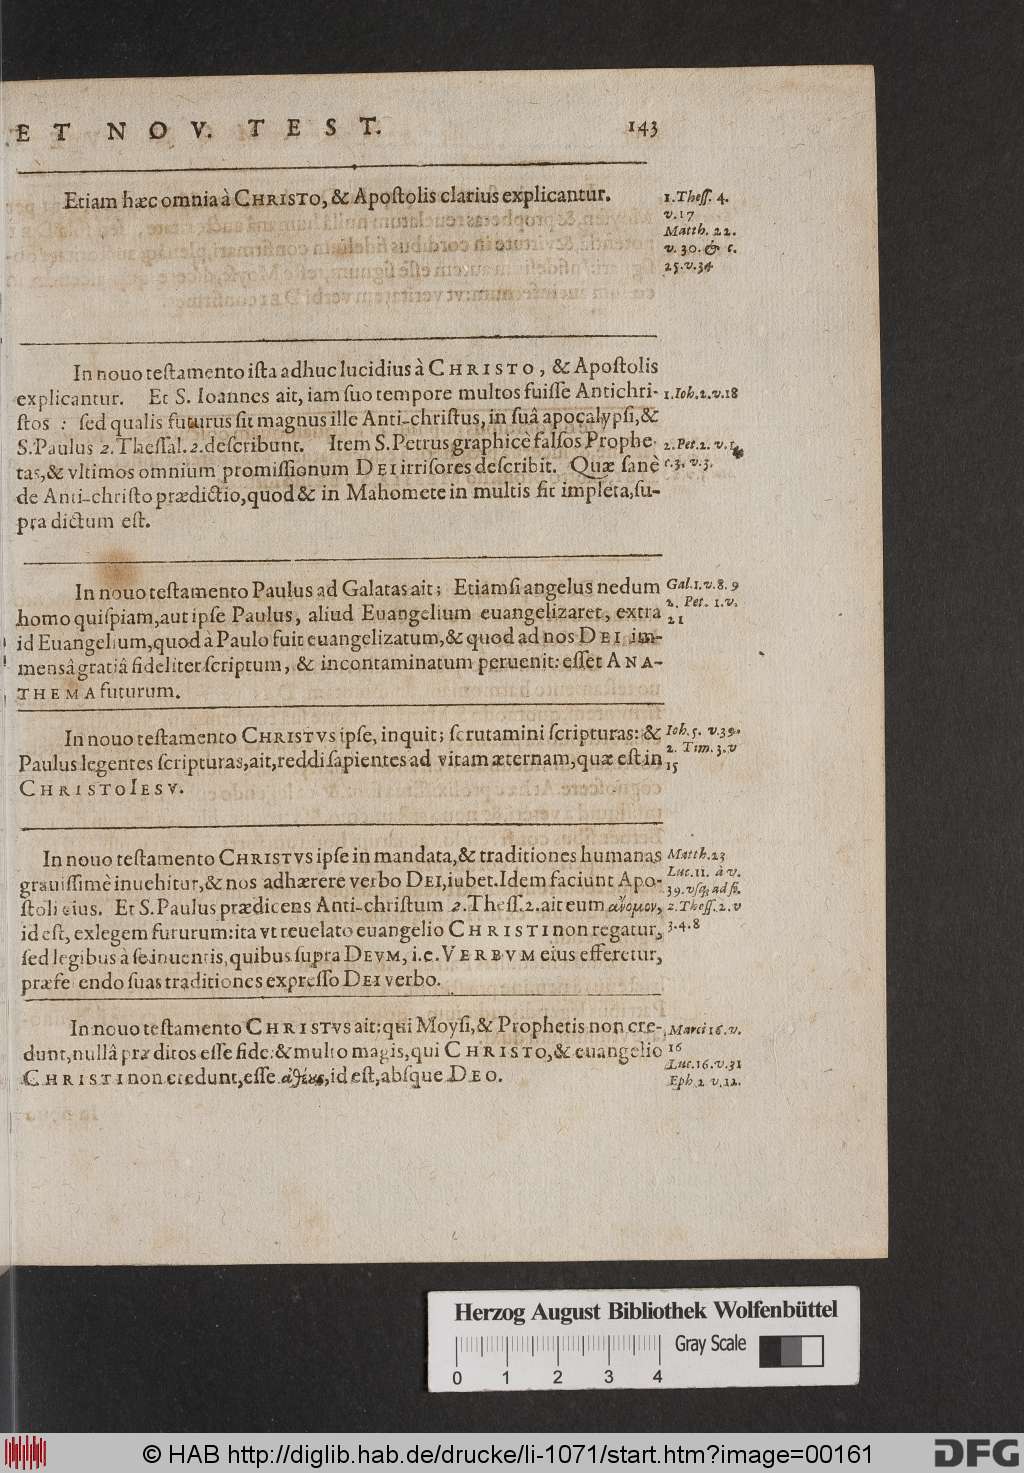 ET NOV. TEST. 143
Etiam hæc omnia à CHRISTO, & Apoſtolis clarius explicantur.
1. Theſſ. 4.
v. 17
Matth. 22.
v. 30. & c.
25. v. 34
In nouo teſtamento iſta adhuc lucidius à CHRISTO, & Apoſtolis
explicantur. Et S. Ioannes ait, iam ſuo tempore multos fuiſſe Antichri-
ſtos : ſed qualis futurus ſit magnus ille Anti-chriſtus, in ſuâ apocalypſi, &
S. Paulus 2. Theſſal. 2. deſcribunt. Item S. Petrus graphicè falſos Prophe-
tas, & vltimos omnium promiſſionum DEI irriſores deſcribit. Quæ ſanè
de Anti-chriſto prædictio, quod & in Mahomete in multis ſit impleta, ſu-
pra dictum eſt.
1. Ioh. 2. v. 18
2. Pet. 2. v. 1.
c. 3. v. 3.
In nouo teſtamento Paulus ad Galatas ait; Etiamſi angelus nedum
homo quiſpiam, aut ipſe Paulus, aliud Euangelium euangelizaret, extra
id Euangelium, quod à Paulo fuit euangelizatum, & quod ad nos DEI im-
mensâ gratiâ fideliter ſcriptum, & incontaminatum peruenit: eſſet ANA-
THEMA futurum.
Gal. 1. v. 8. 9
2. Pet. 1. v.
21
In nouo teſtamento CHRISTVS ipſe, inquit; ſcrutamini ſcripturas: &
Paulus legentes ſcripturas, ait, reddi ſapientes ad vitam æternam, quæ eſt in
CHRISTO IESV.
Ioh. 5. v. 39.
2. Tim. 3. v
15
In nouo teſtamento CHRISTVS ipſe in mandata, & traditiones humanas
grauiſſimè inuehitur, & nos adhærere verbo DEI, iubet. Idem faciunt Apo-
ſtoli eius. Et S. Paulus prædicens Anti-chriſtum 2. Theſſ. 2. ait eum ἄνομον,
id eſt, exlegem futurum: ita vt reuelato euangelio CHRISTI non regatur,
ſed legibus à ſe inuentis, quibus ſupra DEVM, i.e. VERBVM eius efferetur,
præferendo ſuas traditiones expreſſo DEI verbo.
Matth. 23
Luc. 11. à v.
39. vſq; ad fi.
2. Theſſ. 2. v
3. 4. 8
In nouo teſtamento CHRISTVS ait: qui Moyſi, & Prophetis non cre-
dunt, nullâ præditos eſſe fide: & multo magis, qui CHRISTO, & euangelio
CHRISTI non credunt, eſſe ἀθέους, id eſt, abſque DEO.
Marci 16. v.
16
Luc. 16. v. 31
Eph. 2 v. 12.
Herzog August Bibliothek Wolfenbüttel
Gray Scale
0 1 2 3 4
© HAB http://diglib.hab.de/drucke/li-1071/start.htm?image=00161
DFG